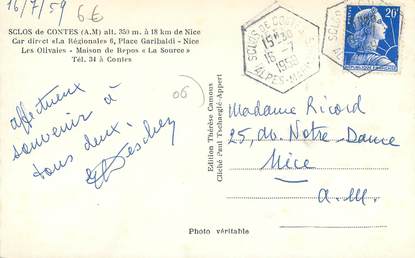 16/7/59 6€
SCLOS de CONTES (A.M) alt. 350 m. à 18 km de Nice
Car direct «La Régionale» 6, Place Garibaldi - Nice
Les Olivaies - Maison de Repos « La Source »
Tél. 34 à Contes
SCLOS DE CONTES
15H30
16 -7
1959
ALPES-MMES
20F
06
affectueux
souvenir à
tous deux.
Edition Thérèse Camous
Cliché Paul Tschaeglé-Appert
Madame Ricord
25, av. Notre-Dame
Nice
A.M.
Photo véritable